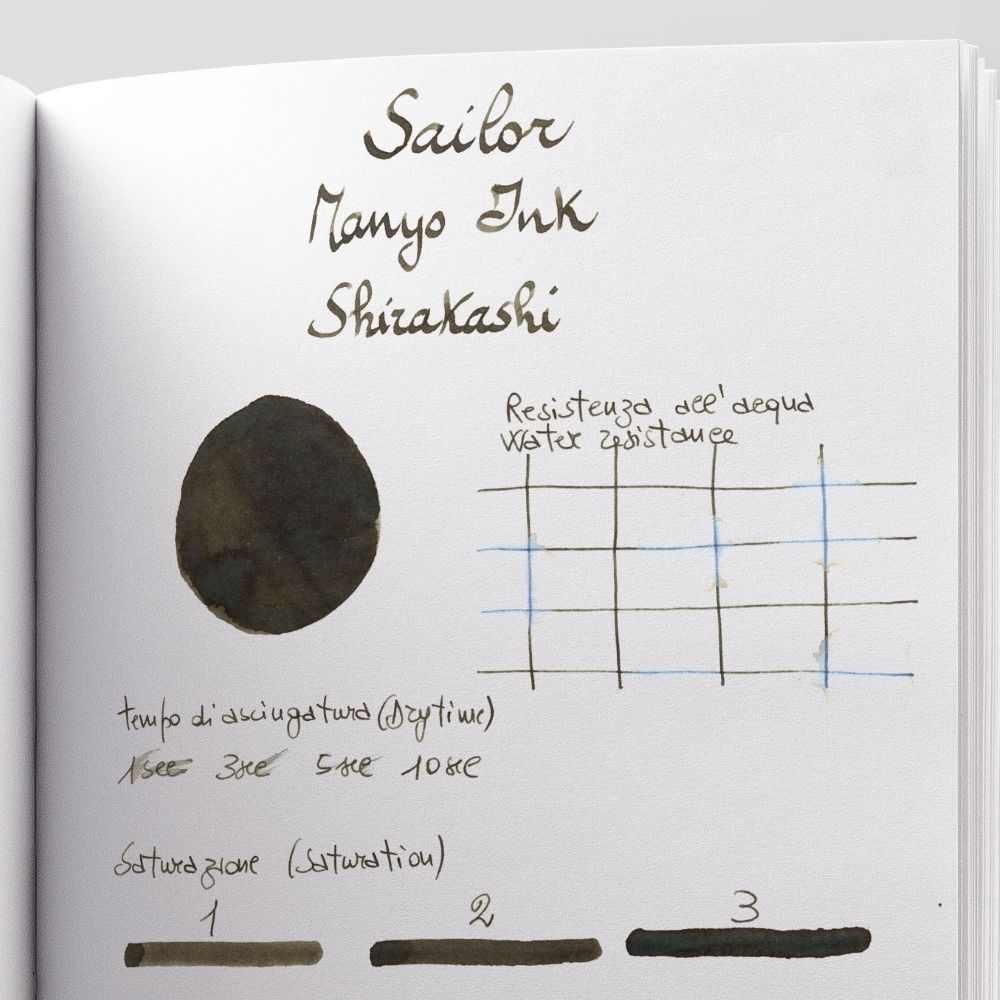 Sailor
Manyo Ink
Shirakashi
Resistenza all'acqua
Water resistance
tempo di asciugatura (Drytime)
1sec 3sec 5sec 10sec
Saturazione (Saturation)
1 2 3